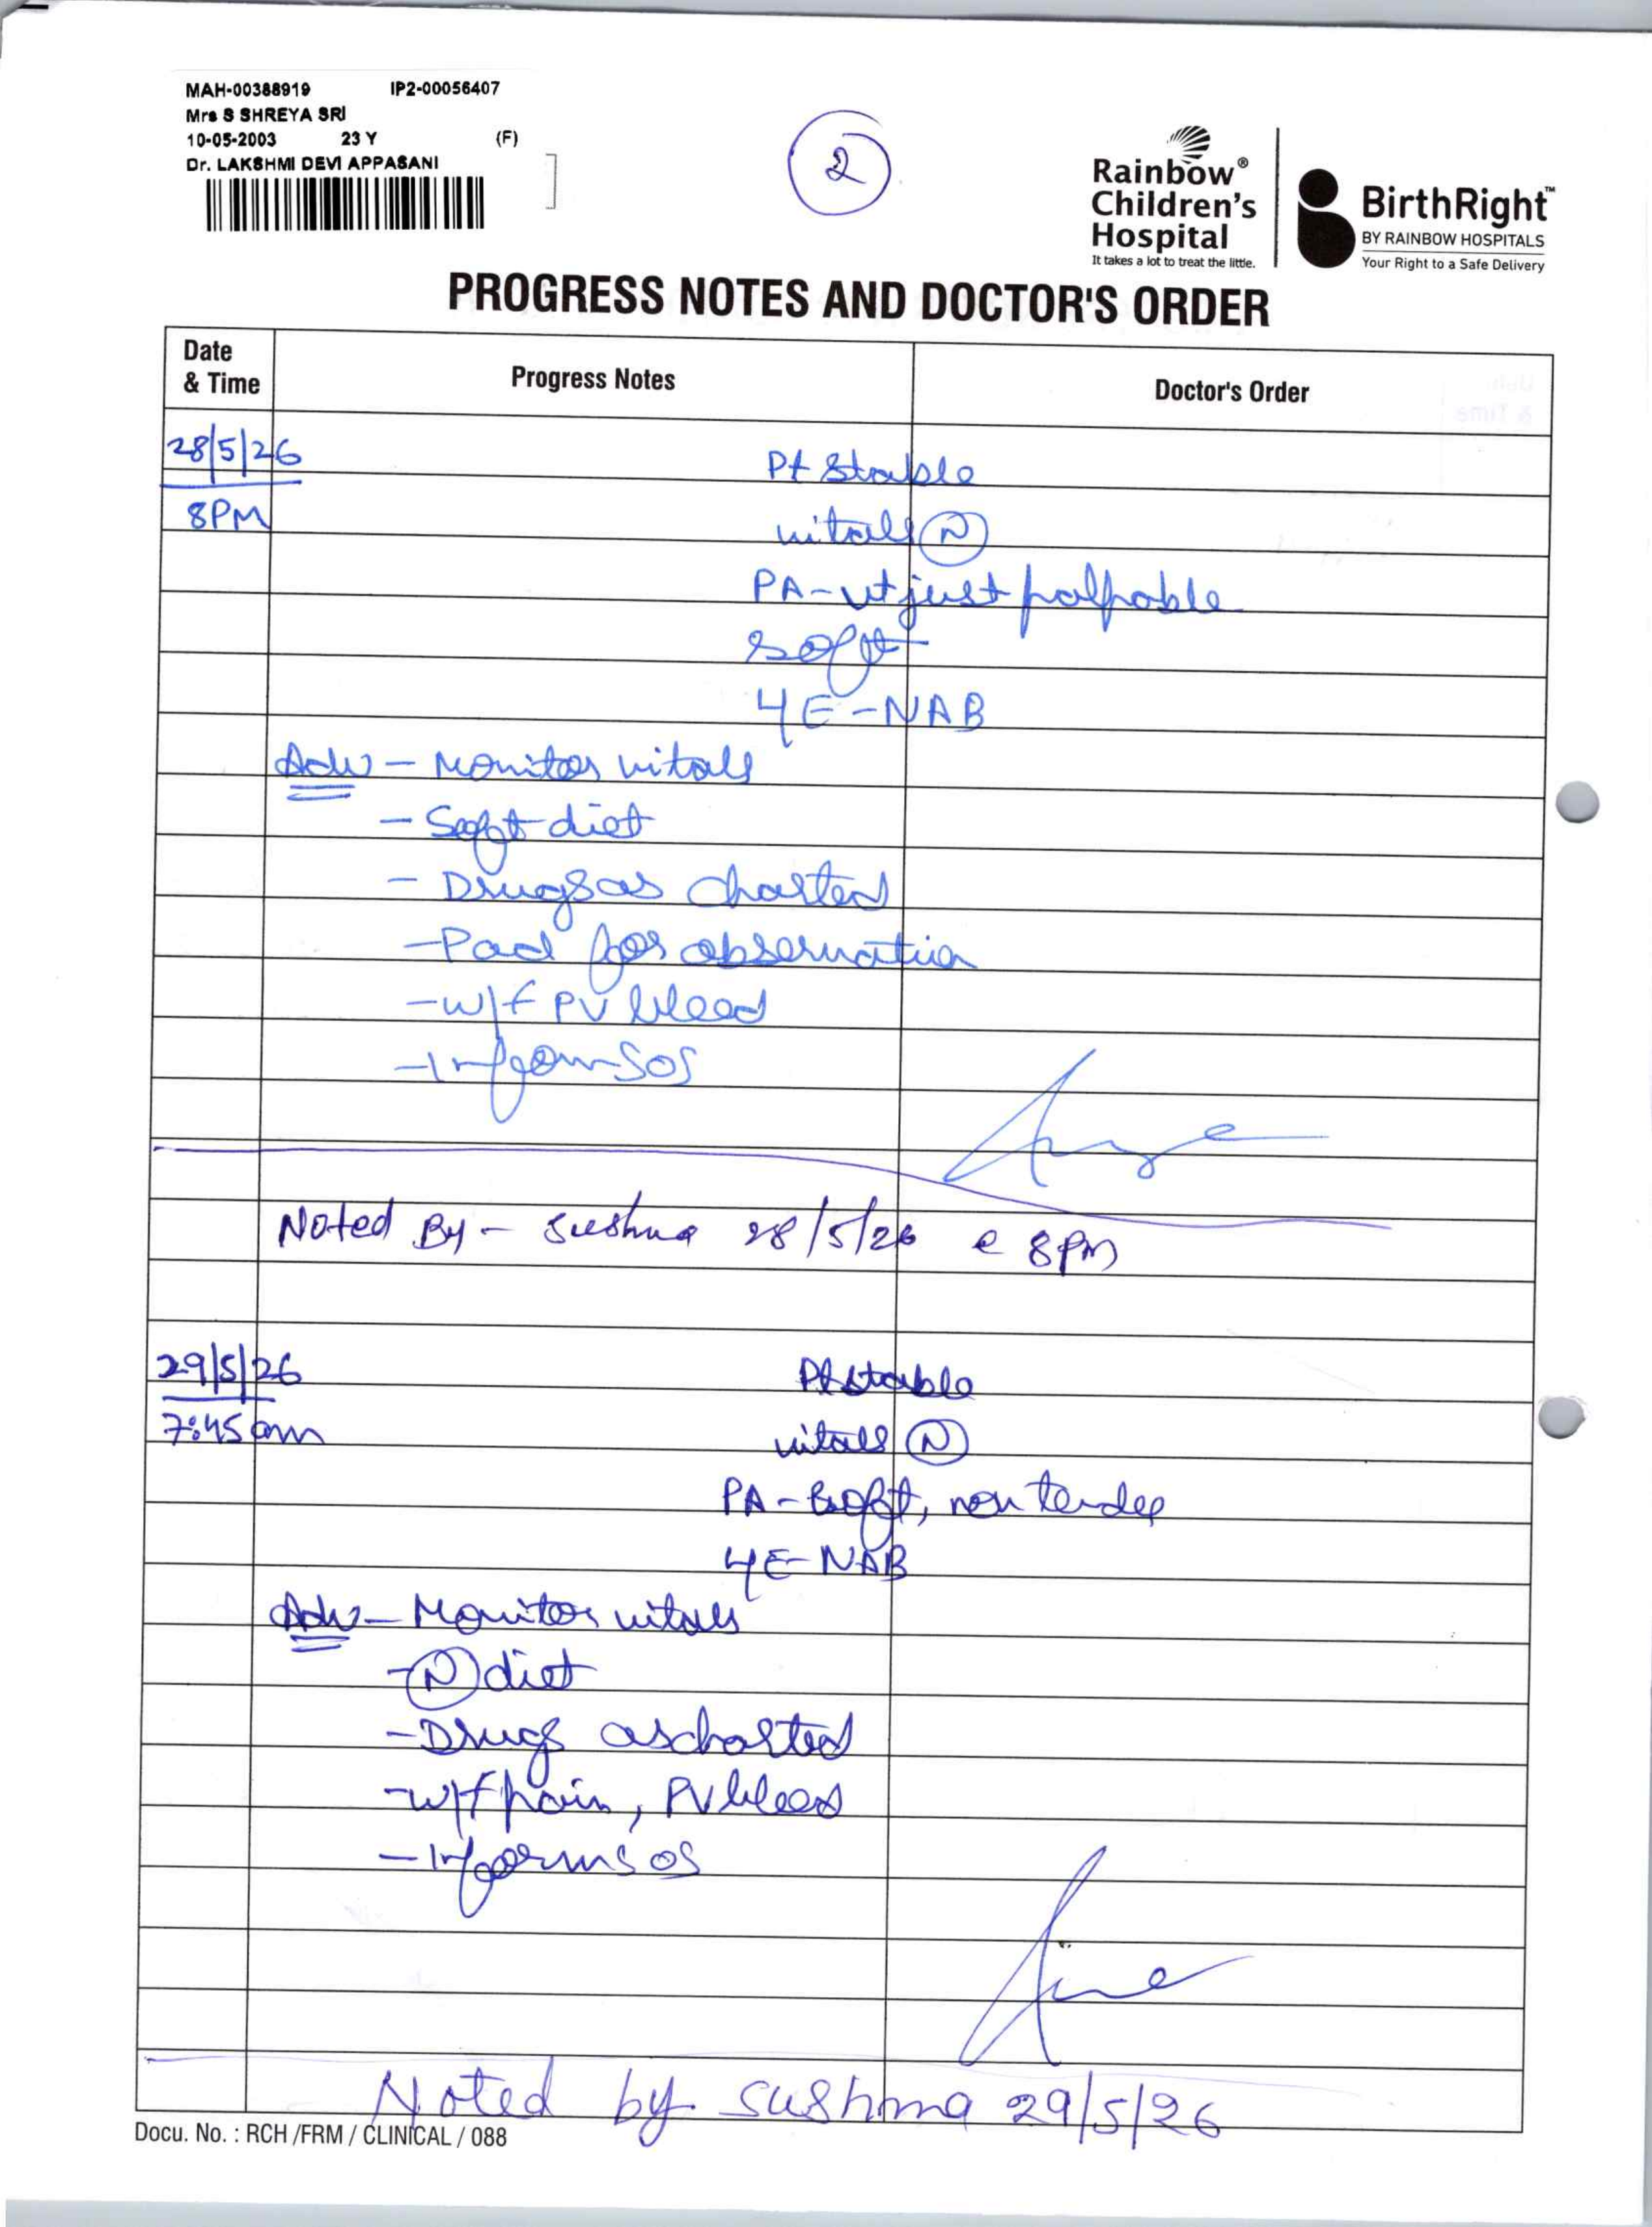 MAH-00388919 IP2-00056407
Mrs S SHREYA SRI
10-05-2003 23 Y (F)
Dr. LAKSHMI DEVI APPASANI
2
Rainbow®
Children's
Hospital
It takes a lot to treat the little.
BirthRight™
BY RAINBOW HOSPITALS
Your Right to a Safe Delivery
PROGRESS NOTES AND DOCTOR'S ORDER
Date & Time Progress Notes Doctor's Order
28/5/26 Pt Stable
8PM vitals N
PA - ut just palpable
soft
LE - NAB
Adv - Monitor vitals
- Soft diet
- Drugs as charted
- Pad for observation
- W/f PV bleed
- Inform SOS
Noted By - Sushma 28/5/26 @ 8pm
29/5/26 Pt stable
7:45 am vitals N
PA - Soft, non tender
LE - NAB
Adv - Monitor vitals
- N diet
- Drugs as charted
- w/f pain, PV bleed
- Inform SOS
Noted by Sushma 29/5/26
Docu. No. : RCH /FRM / CLINICAL / 088